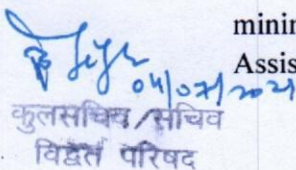 minin
Assis
04/07/2021
कुलसचिव/सचिव
विद्वत परिषद